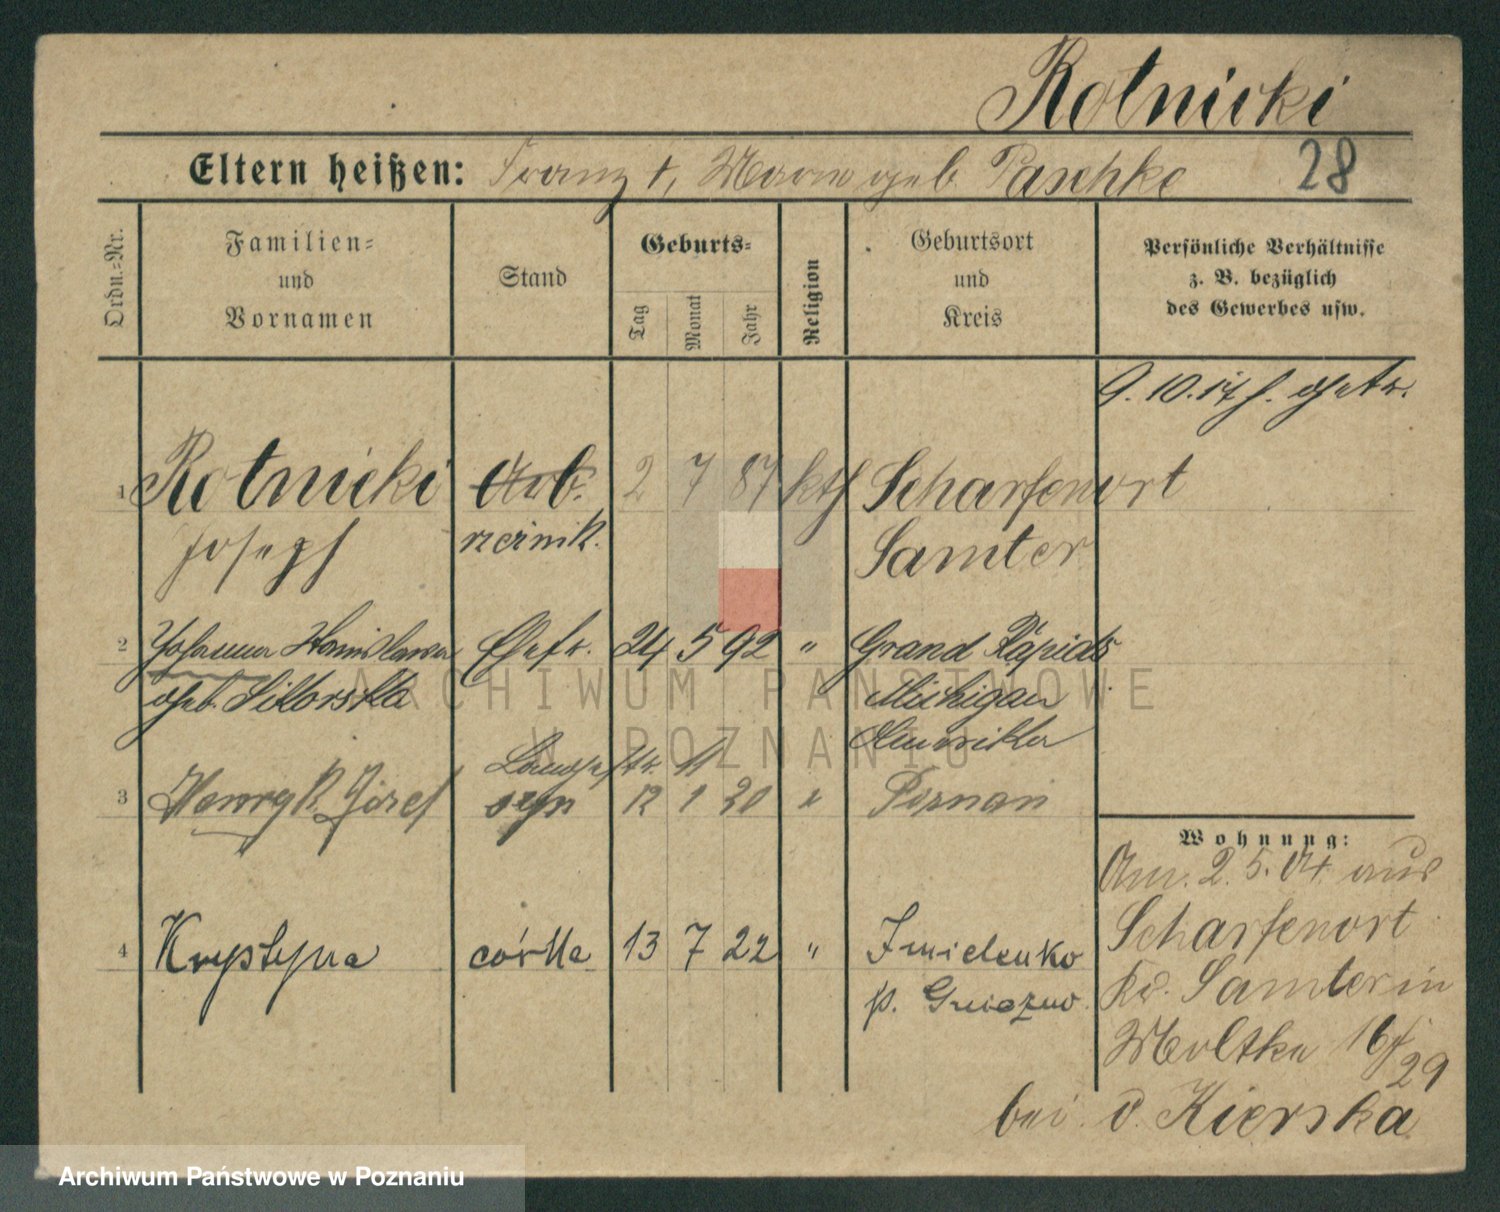 Rotnicki
Eltern heißen: Franz †, Marie geb Paschke 28
Ordn.=Nr.
Familien=
und
Vornamen
Stand
Geburts=
Tag
Monat
Jahr
Religion
Geburtsort
und
Kreis
Persönliche Verhältnisse
z. B. bezüglich
des Gewerbes usw.
9. 10. 17
1 Rotnicki Arb. 2 7 87 kth Scharfenort
Joseph rzeźnik. Samter
2 Johanna Stanislawa Ehefr. 24 5 92 " Grand Rapids
geb. Sikorska Michigan
Amerika
11
3 Henryk Józef syn 12 1 20 " Poznan
4 Krystyna córka 13 7 22 " Imielenko
p. Gniezno
Wohnung:
Am. 2. 5. 04. aus
Scharfenort
Kr. Samter in
Moltke 16/
29
bei v. Kierska
ARCHIWUM PAŃSTWOWE
W POZNANIU
Archiwum Państwowe w Poznaniu